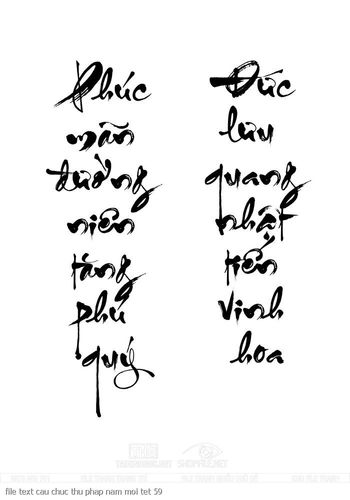 Phúc
mãn
đường
niên
tăng
phú
quý
Đức
lưu
quang
nhật
tiến
vinh
hoa
SHOPFILE.NET
file text cau chuc thu phap nam moi tet 59